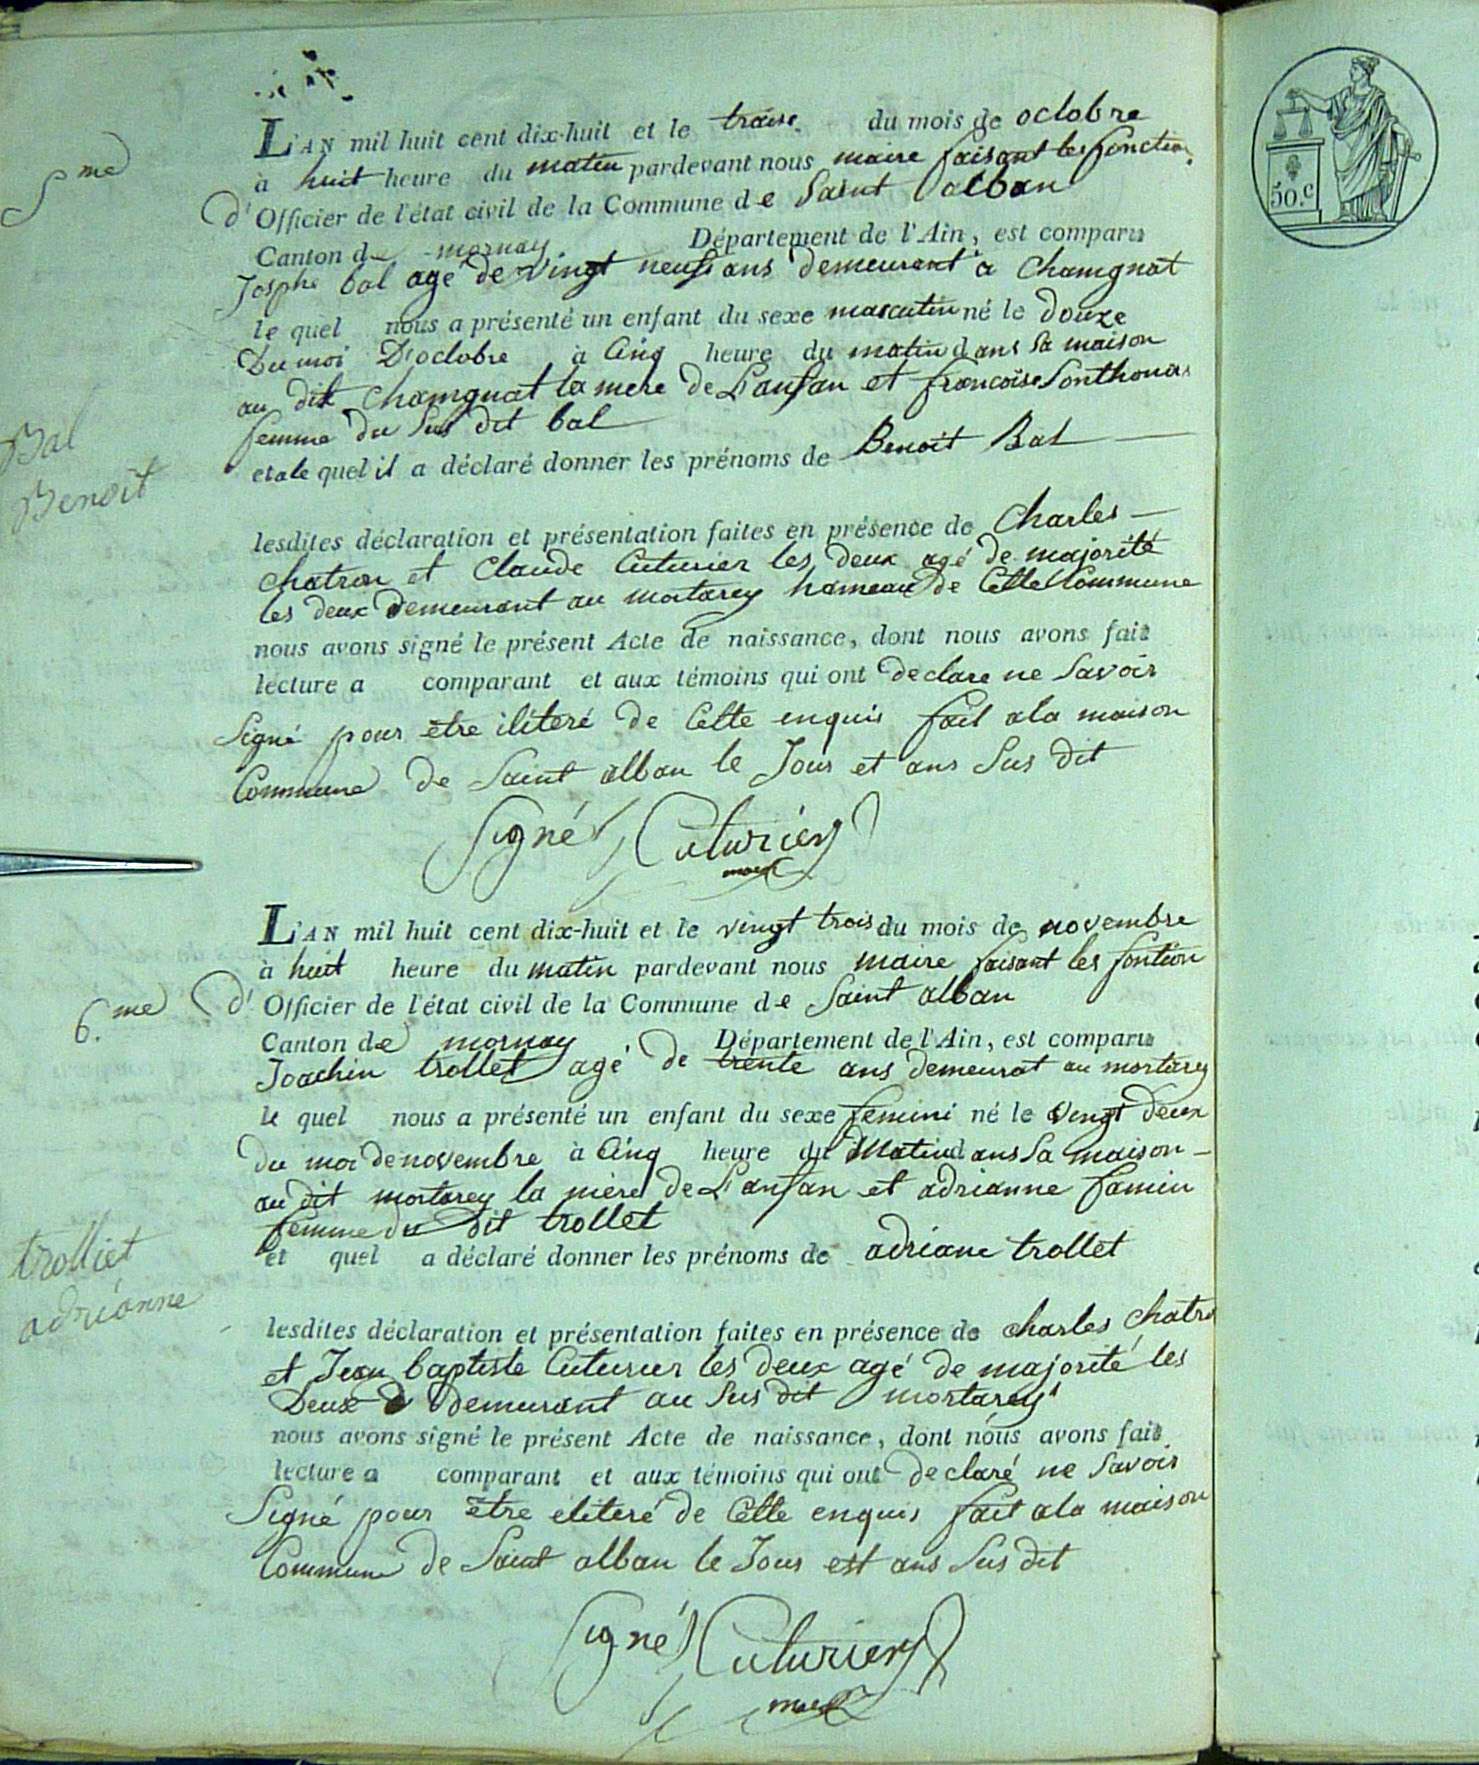 5me
L'AN mil huit cent dix-huit et le traise du mois de octobre
à huit heure du matin pardevant nous maire faisant les fonction
d' Officier de l'état civil de la Commune de Saint alban
Canton de mornay Département de l'Ain, est comparu
Josphe bal agé de vingt neuf ans demeurant a Chamgnat
le quel nous a présenté un enfant du sexe masculin né le douze
Du moi D'octobre à Cinq heure du matin dans Sa maison
au dit Chamgnat la mere de L'ansan et francoise Sonthonas
femme du Sus dit bal
Bal
Benoit
etale quel il a déclaré donner les prénoms de Benoit Bal
lesdites déclaration et présentation faites en présence de Charles
chatron et Claude Cuturier les deux agé de majorité
les deux demeurant au mortarey hameau de Cette Commune
nous avons signé le présent Acte de naissance, dont nous avons fait
lecture a comparant et aux témoins qui ont declare ne Savoir
Signé pour être iliteré de Cette enquis fait ala maison
Commune de Saint alban le Jour et ans Sus dit
Signé Cuturier
maire
6.me
L'AN mil huit cent dix-huit et le vingt trois du mois de novembre
à huit heure du matin pardevant nous maire faisant les fontion
d' Officier de l'état civil de la Commune de Saint alban
Canton de mornay Département de l'Ain, est comparu
Joachin trollet agé de trente ans demeurat au mortarey
le quel nous a présenté un enfant du sexe femini né le vingt deux
du moi de novembre à Cinq heure du matin dans Sa maison
au dit mortarey la mère de L'ansan et adrianne famin
femme du dit trollet
et quel a déclaré donner les prénoms de adriane trollet
trolliet
adriánne
lesdites déclaration et présentation faites en présence de charles chatro
et Jean baptiste Cuturier les deux agé de majorité les
Deux demeurant au Sus dit mortarey
nous avons signé le présent Acte de naissance, dont nous avons fait
lecture a comparant et aux témoins qui ont declaré ne Savoir
Signé pour être eliteré de Cette enquis fait ala maison
Commune de Saint alban le Jour est ans Sus dit
Signé Cuturier
maire
50.c